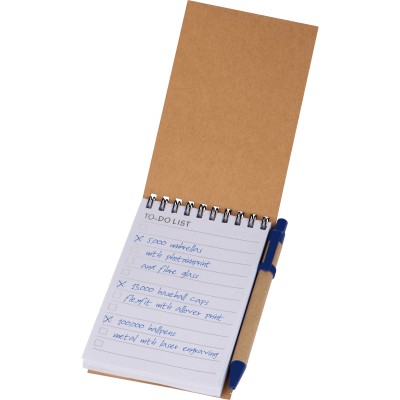 TO-DO LIST
5.000 umbrellas
with photoonprint
and fibre glass
15.000 baseball caps
flexfit with allover print
100.000 ballpens
metal with laser engraving